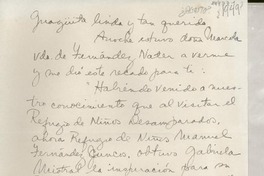 linda y tan querida,
Anoche estuvo doña
vda. de Fernández Nater a verme
y me dió este recado para ti:
"Habiendo venido a nues-
tro conocimiento que al visitar el
Refugio de Niños Desamparados,
ahora Refugio de Niños Manuel
Fernández Juncos, obtuvo Gabriela
Mistral la inspiración para su